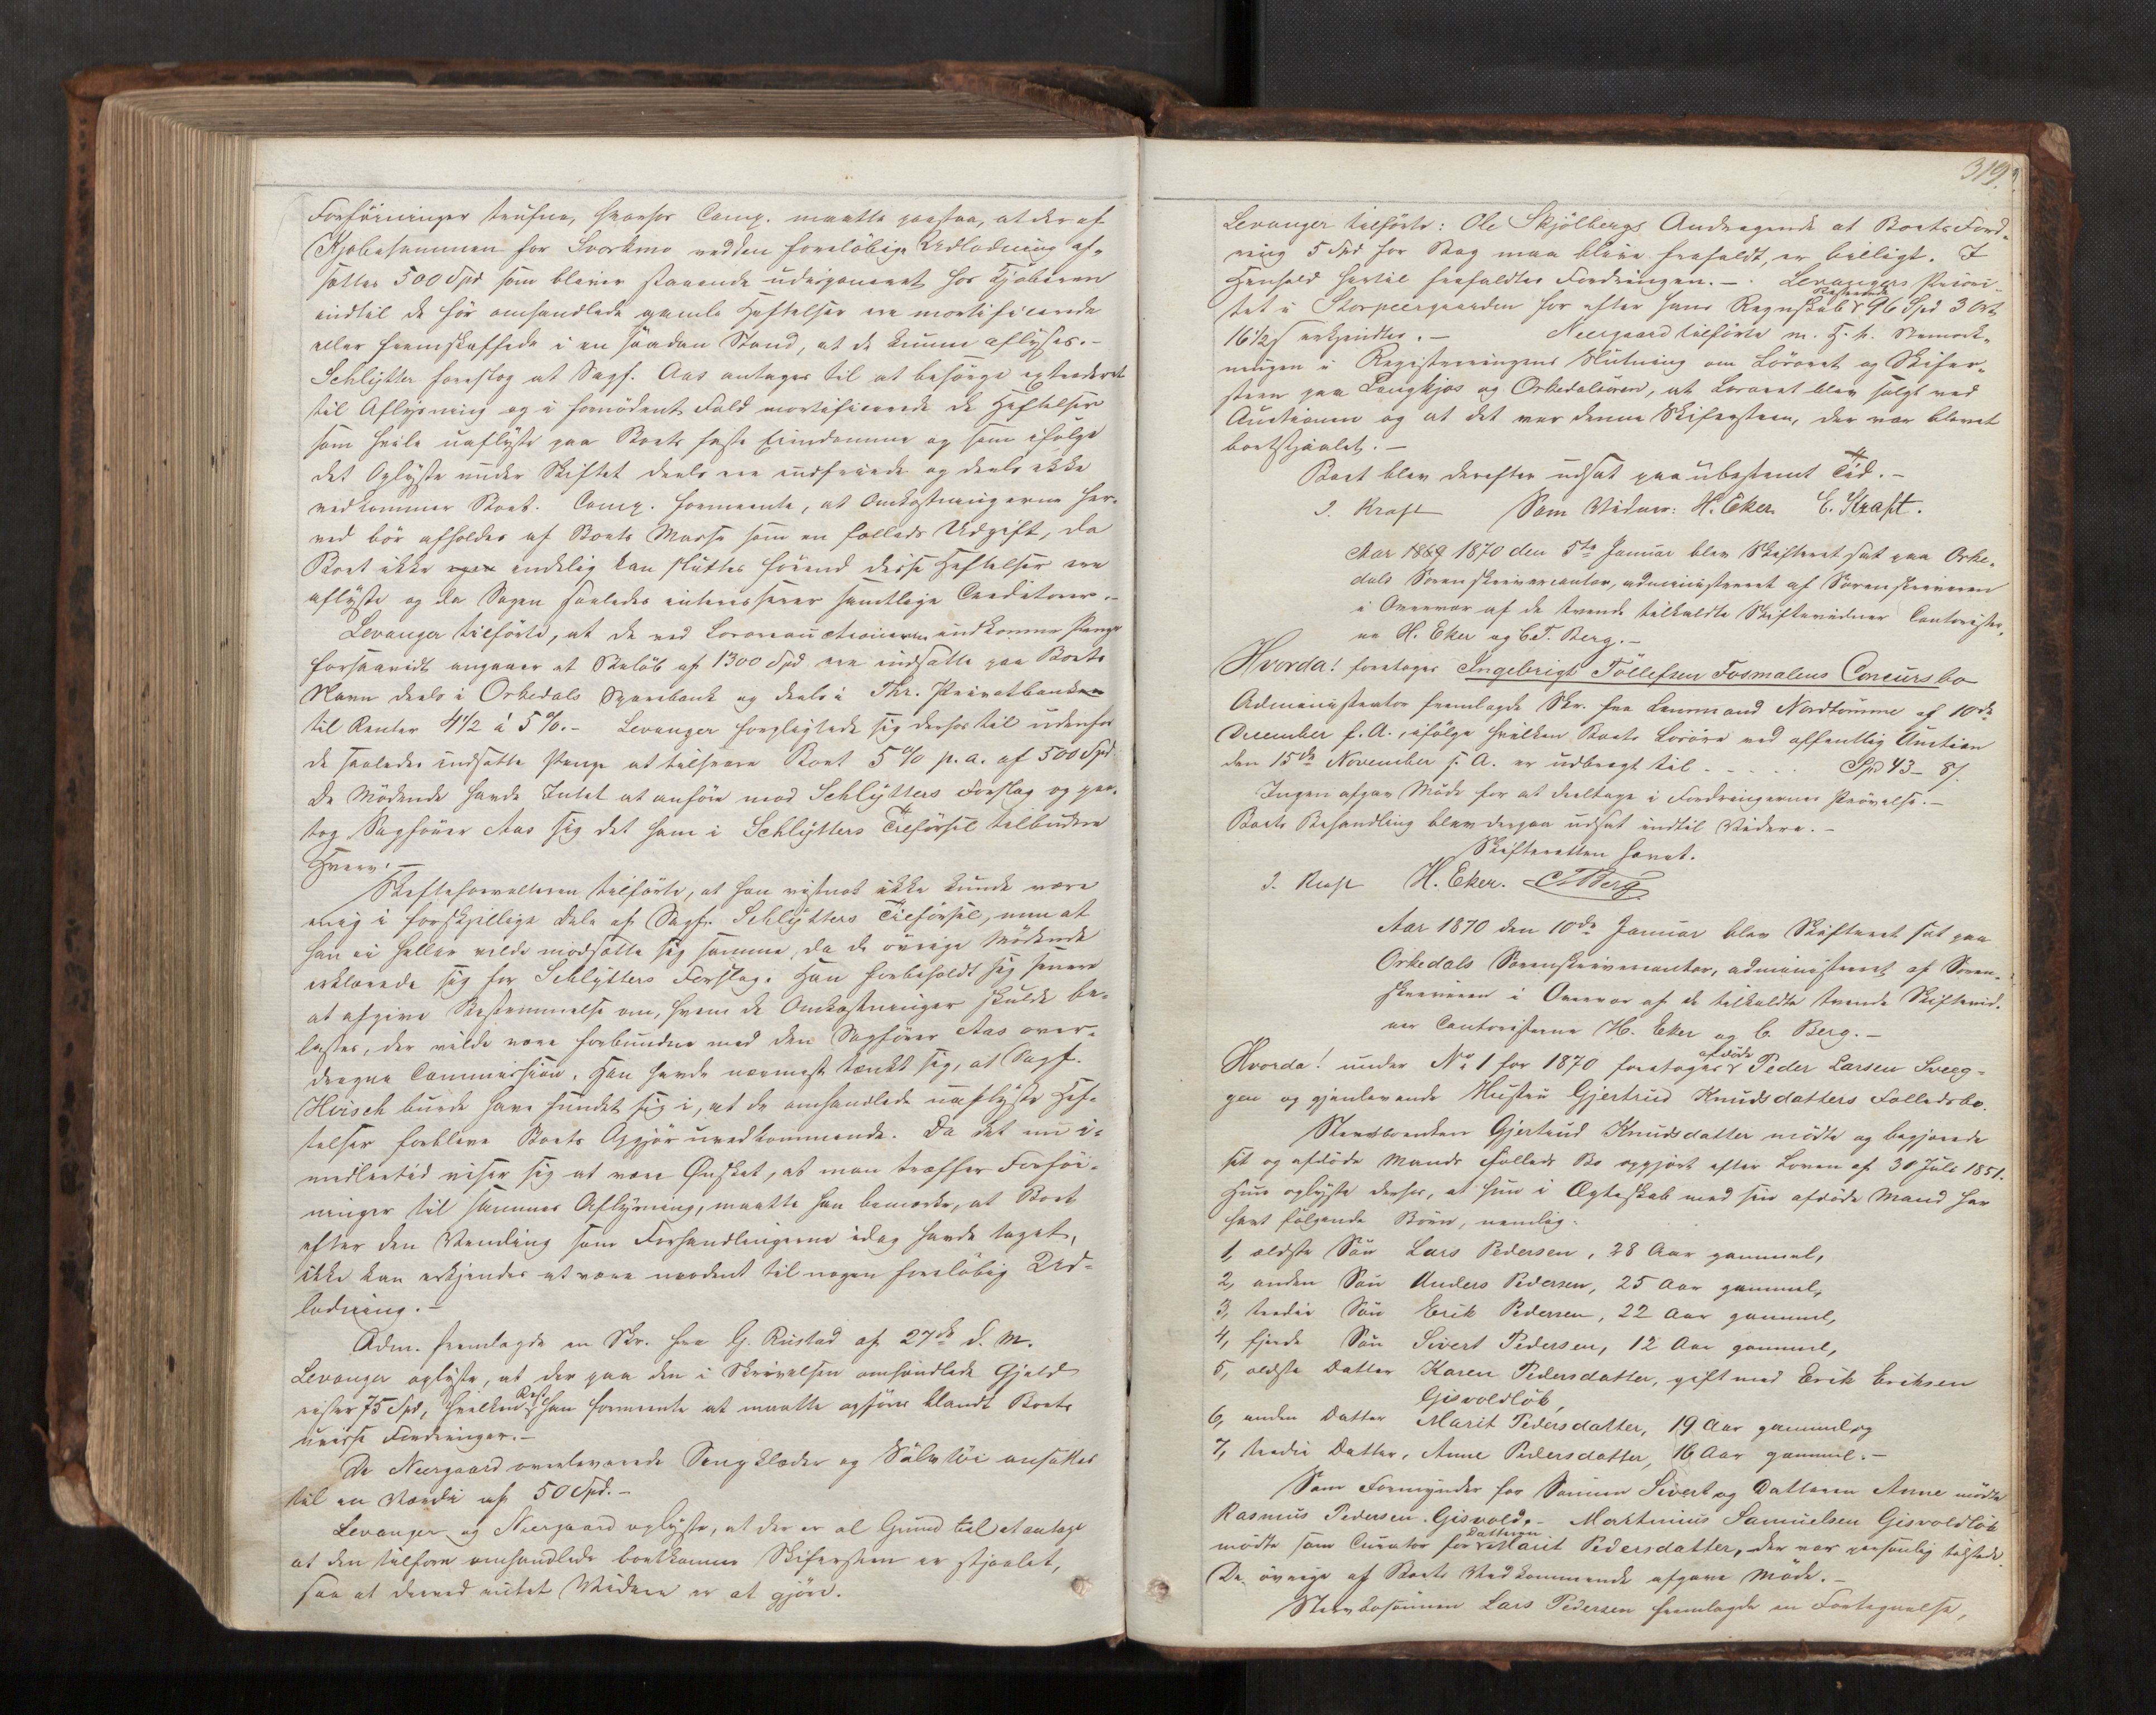 Forføininger trufne, hvorfor Comp. maatte paastaa, at der af
Kjøbesummen for Svorkmo ved den foreløbige Udlodning af-
sættes 500 Spd som bliver staaende udisponeret hos Kjøberen
indtil de før omhandlede gamle Heftelser ere mortificerede
eller fremskaffede i en saadan Stand, at de kunne aflyses.-
Schlytter foreslog at Sagf. Aas antages til at besørge extraderet
til Aflysning og i fornødent Fald mortificerede de Heftelser
som hvile uaflyste paa Boets faste Eiendomme og som ifølge
det Oplyste under Skiftet deels ere indfriede og deels ikke
vedkommer Boet. Comp. formeente, at Omkostningerne her-
ved bør afholdes af Boets Masse som en fælleds Udgift, da
Boet ikke endelig kan sluttes førend disse Heftelser ere
aflyste og da Sagen saaledes interesserer samtlige Creditorer.-
Levanger tilførte, at de ved Løsøreauctionerne indkomne Penge
forsaavidt angaaer et Beløb af 1300 Spd ere indsatte paa Boets
Navn deels i Orkedals Sparebank og deels i Thr. Privatbanken
til Renter 4 1/2 à 5 %.- Levanger forpligtede sig derfor til udenfor
de saaledes indsatte Penge at tilsvare Boet 5 % p. a. af 500 Spd
De Mødende havde Intet at anføre mod Schlytters Forslag og paa-
tog Sagfører Aas sig det ham i Schlytters Tilførsel tilbudne
Hverv.-
Skifteforvalteren tilførte, at han vistnok ikke kunde være
enig i forskjellige Dele af Sagf. Schlytters Tilførsel, men at
han ei heller vilde modsætte sig samme, da de øvrige Mødende
erklærede sig for Schlytters Forslag. Han forbeholdt sig senere
at afgive Bestemmelse om, hvem de Omkostninger skulde be-
lastes, der vilde være forbundne med den Sagfører Aas over-
dragne Commission. Han havde nærmest tænkt sig, at Sagf.
Hirsch burde have fundet sig i, at de omhandlede uaflyste Hef-
telser forbleve Boets Opgjør uvedkommende. Da det nu i-
midlertid viser sig at være Ønsket, at man træffer Forføi-
ninger til sammes Aflysning, maatte han bemærke, at Boet
efter den Vending som Forhandlingerne idag havde taget,
ikke kan erkjendes at være modent til nogen foreløbig Ud-
lodning.-
Adm. fremlagde en Skr. fra G. Rustad af 27de d. M.
Levanger oplyste, at der paa den i Skrivelsen omhandlede Gjeld
rester 75 Spd, hvilken Rest han formeente at maatte opføres blandt Boets
uvisse Fordringer.-
De Neergaard overleverede Sengklæder og Sølvtøi ansattes
til en Værdi af 50 Spd.-
Levanger og Neergaard oplyste, at der er al Grund til at antage
at den tilforn omhandlede bortkomne Skifersteen er stjaalet,
saa at dermed intet Videre er at gjøre.
319.
Levanger tilførte: Ole Skjølbergs Andragende at Boets Ford-
ring 5 Spd for Bog maa blive frafaldt, er billigt. I
Henhold hertil frafaldtes Fordringen.- Levangers Priori-
tet i Storpeergaarden for efter hans Regnskab resterende 96 Spd 3 Ort
16 1/2 s erkjendtes.- Neergaard tilførte m. H. t. Bemærk-
ningen i Registreringens Slutning om Løsøret og Skifer-
steen paa Langhjøs og Orkedalsøren, at Løsøret blev solgt ved
Auctionen og at det var denne Skifersteen, der var blevet
bortstjaalet.-
Boet blev derefter udsat paa ubestemt Tid.-
J. Kraft Som Vidner: H. Eker. E. Kraft.
Aar 1869 1870 den 5te Januar blev Skifteret sat paa Orke-
dals Sorenskrivercontor, administreret af Sorenskriveren
i Overvær af de tvende tilkaldte Skiftevidner Contorister-
ne H. Eker og C. T. Berg.-
Hvorda! foretoges Ingebrigt Tøllefsen Fosmalens Concursbo
Administrator fremlagde Skr. fra Lensmand Nordtømme af 10de
December f. A., ifølge hvilken Boets Løsøre ved offentlig Auction
den 15de November s. A. er udbragt til - - - - - Spd 43 - 8 s.
Ingen afgav Møde for at deeltage i Fordringernes Prøvelse.-
Boets Behandling blev derpaa udsat indtil Videre.-
Skifteretten hævet.
J. Kraft H. Eker. C. T. Berg
Aar 1870 den 10de Januar blev Skifteret sat paa
Orkedals Sorenskrivercontor, administreret af Soren-
skriveren i Overvær af de tilkaldte tvende Skiftevid-
ner Contoristerne H. Eker og C. Berg.-
Hvorda! under No 1 for 1870 foretoges afdøde Peder Larsen Sveeg-
gen og gjenlevende Hustru Gjertrud Knudsdatters Fælledsbo.
Stervboenken Gjertrud Knudsdatter mødte og begjærede
sit og afdøde Mands Fælleds Bo opgjort efter Loven af 30 Juli 1851.
Hun oplyste derhos, at hun i Ægteskab med sin afdøde Mand har
havt følgende Børn, nemlig:
1, ældste Søn Lars Pedersen, 28 Aar gammel,
2, anden Søn Anders Pedersen, 25 Aar gammel,
3, tredie Søn Erik Pedersen, 22 Aar gammel,
4, fjerde Søn Sivert Pedersen, 12 Aar gammel,
5, ældste Datter Karen Pedersdatter, gift med Erik Eriksen
Gisvoldløk,
6, anden Datter Marit Pedersdatter, 19 Aar gammel og
7, tredie Datter, Anne Pedersdatter, 16 Aar gammel.-
Som Formynder for Sønnen Sivert og Datteren Anne mødte
Rasmus Pedersen Gisvold,- Morktinius Samuelsen Gisvoldløk
mødte som Curator for Datteren Marit Pedersdatter, der var personlig tilstede.
De øvrige af Boets Vedkommende afgave Møde.-
Stervbosønnen Lars Pedersen fremlagde en Fortegnelse,